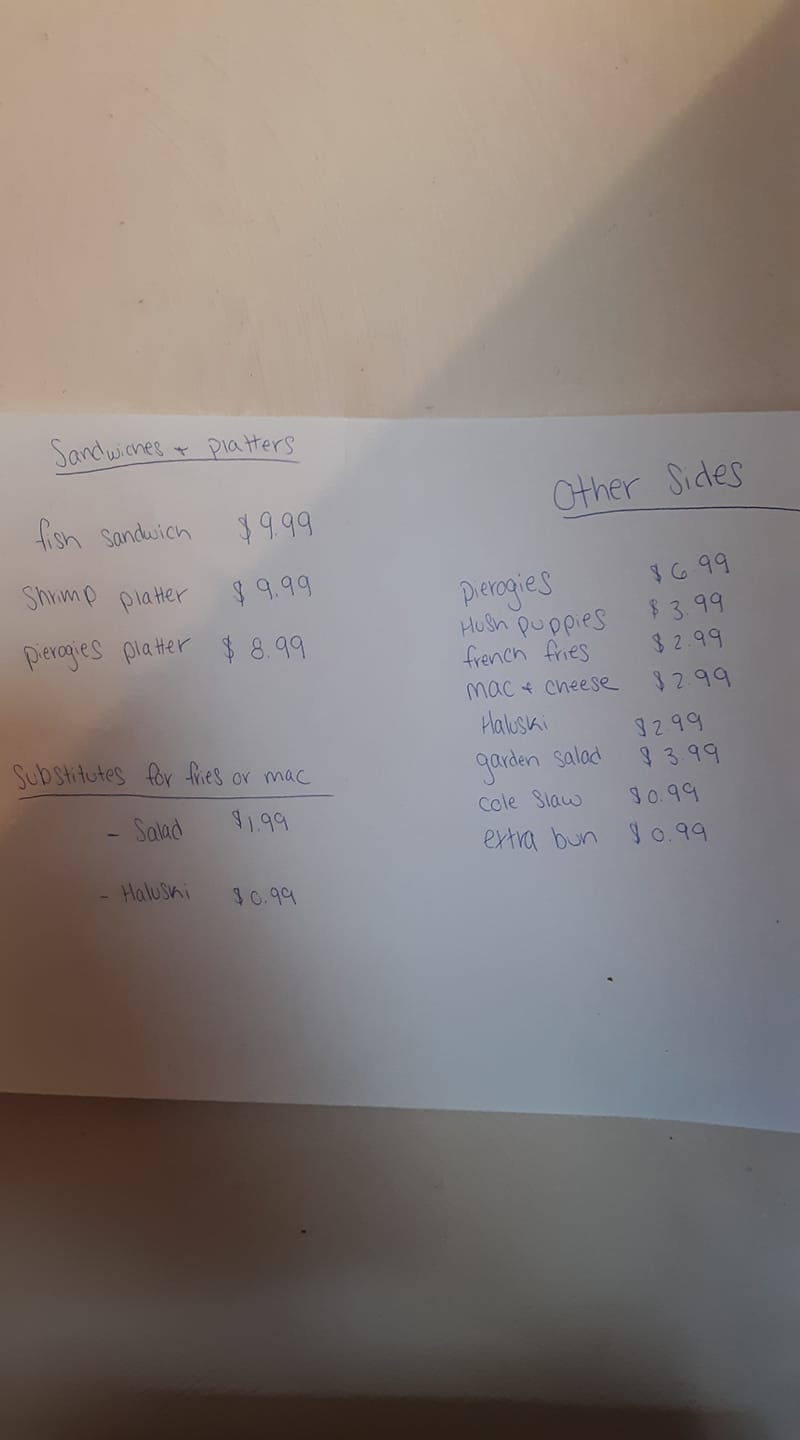 Sandwiches + platters
fish sandwich $9.99
Shrimp platter $9.99
pierogies platter $8.99
Substitutes for fries or mac
- Salad $1.99
- Haluski $0.99
Other Sides
Pierogies $6.99
Hush puppies $3.99
french fries $2.99
mac + cheese $2.99
Haluski $2.99
garden salad $3.99
cole slaw $0.99
extra bun $0.99